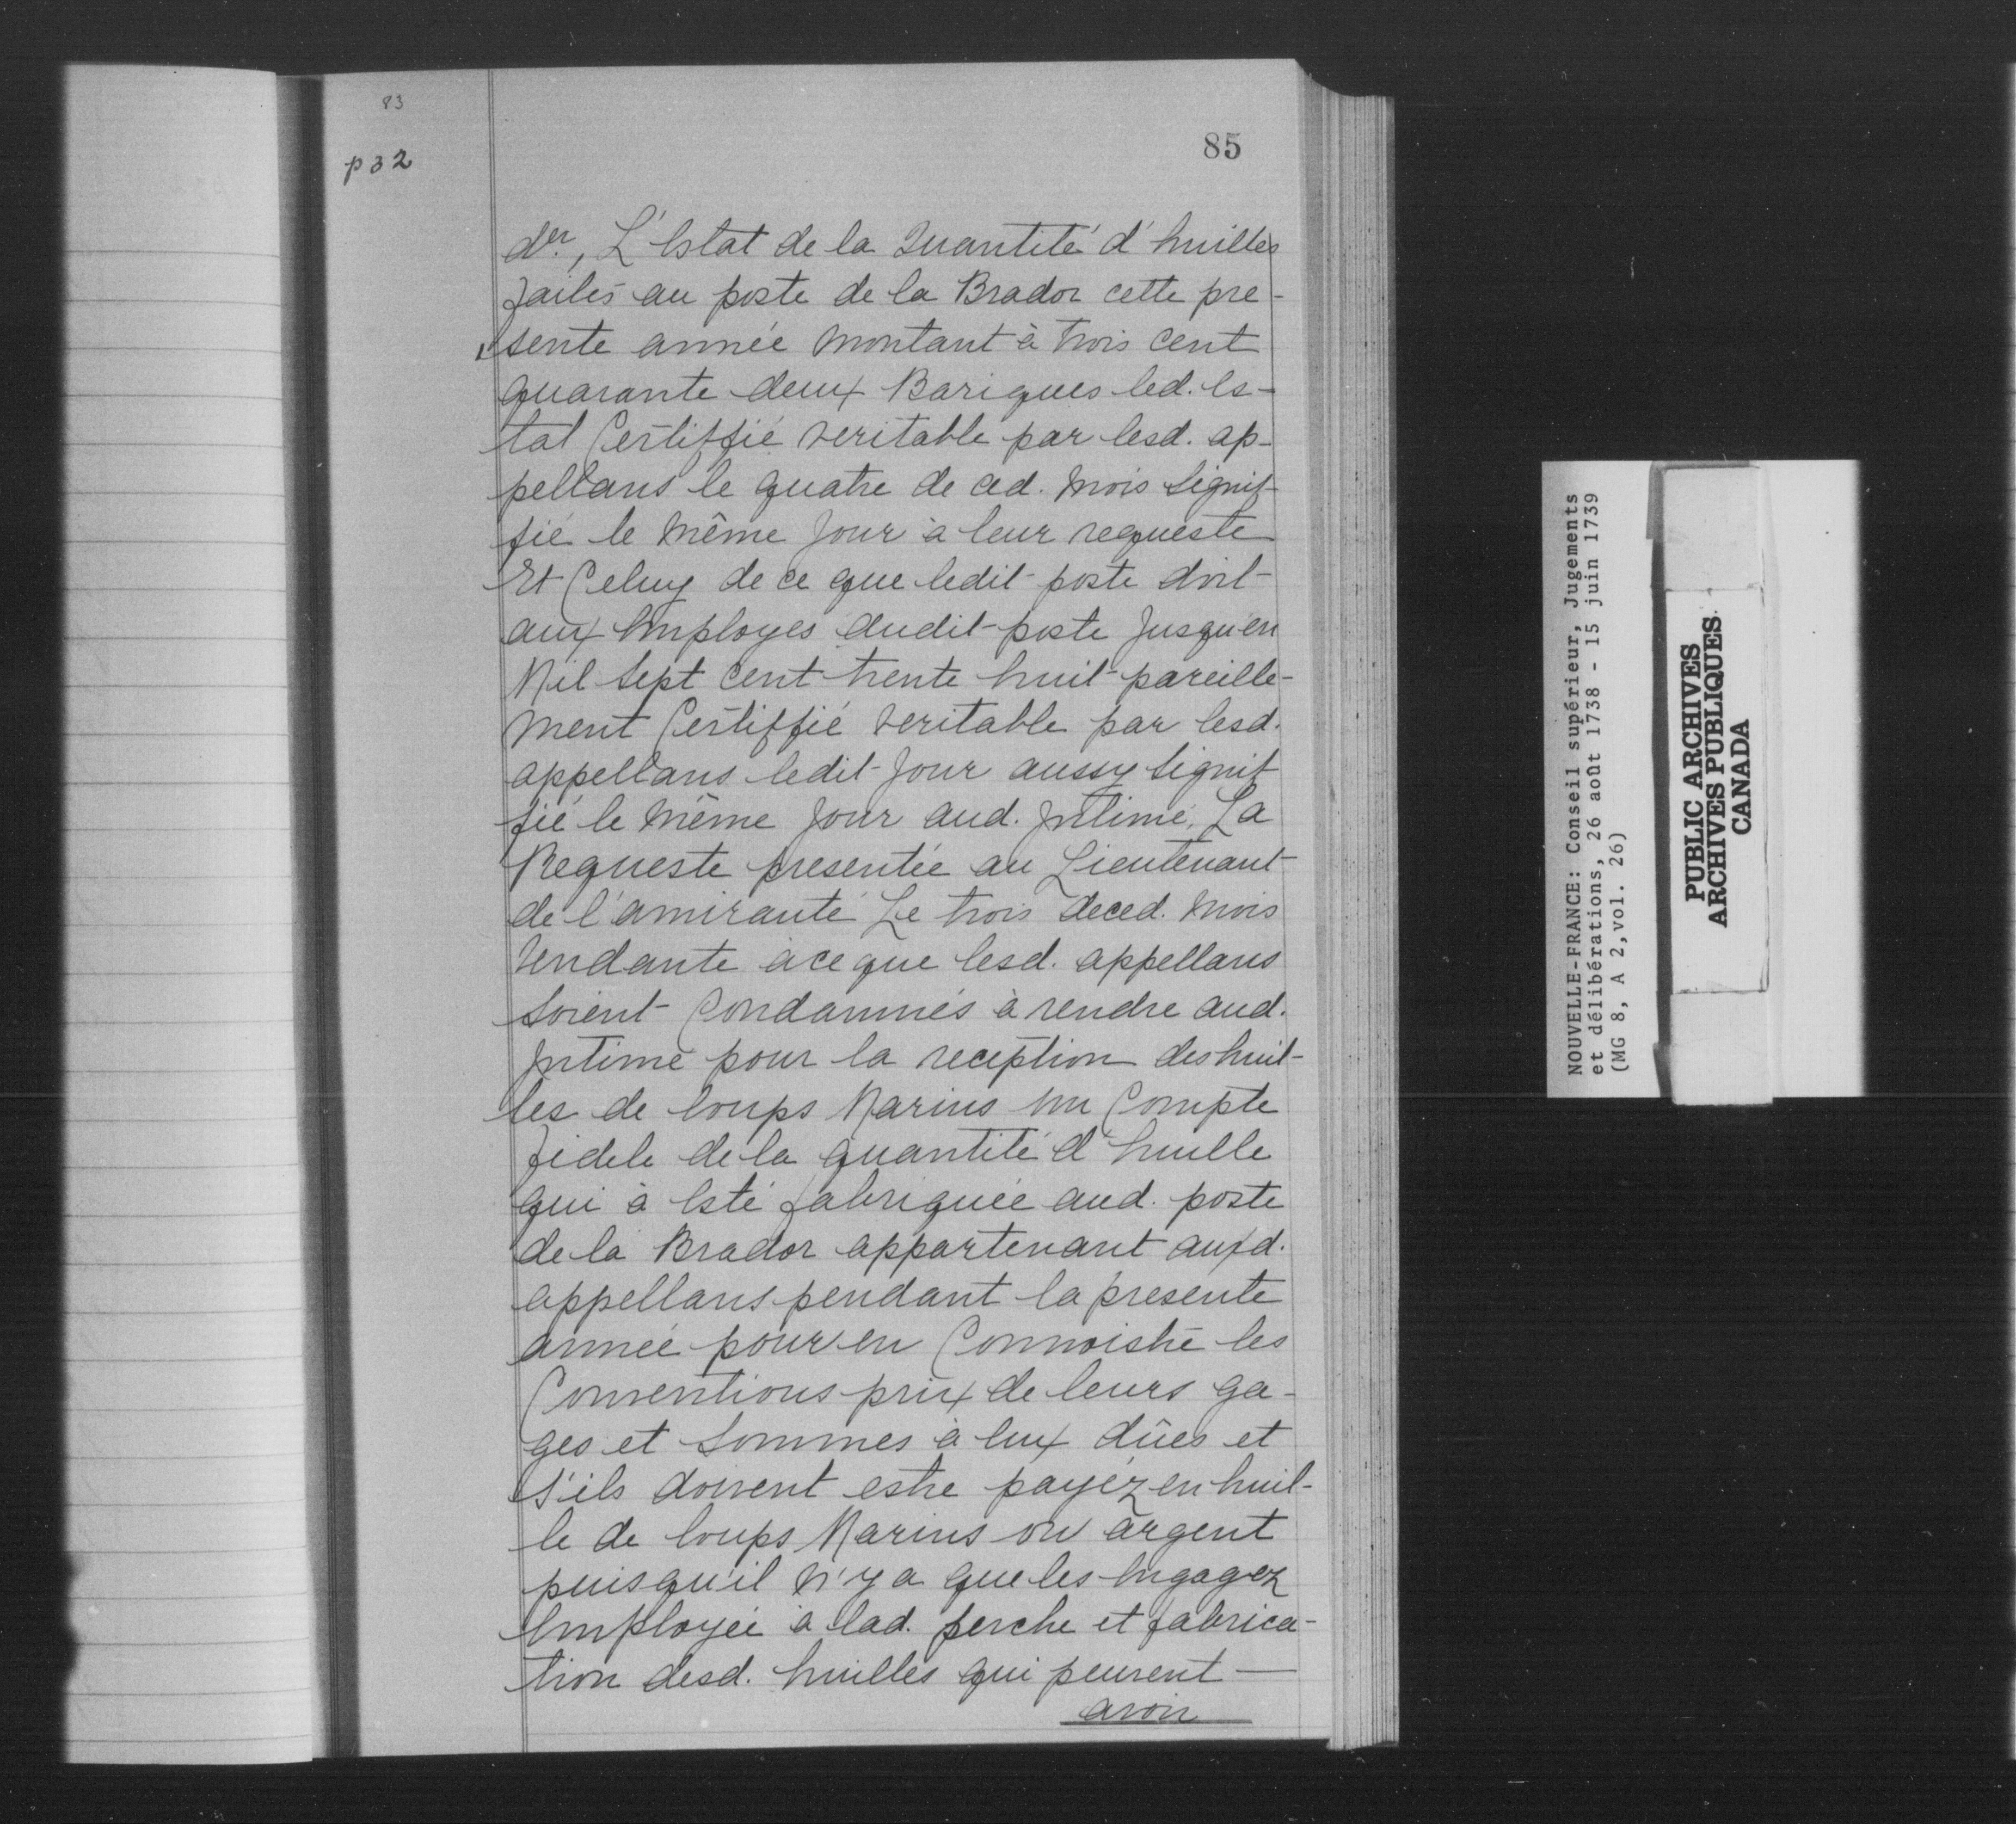 83
p 32
85
der, L'Estat de la Quantité d'huilles
faites au poste de la Brador cette pre-
sente année Montant à trois Cent
quarante deux Bariques led. Es-
tat Certiffié veritable par lesd. ap-
pellans le quatre de ced. mois signif-
fié le Même Jour à leur requeste
Et Celuy de ce que ledit poste doit
aux Employes dudit poste Jusqu'en
Mil sept Cent trente huit pareille-
ment Certiffié veritable par lesd.
appellans ledit Jour aussy signif
fié le Même Jour aud. Intimé. La
Requeste presentée au Lieutenant
de l'amirauté Le trois deced. Mois
tendante a ce que lesd. appellans
soient Condamnés à rendre aud.
Intimé pour la reception des huil-
les de loups Marins un Compte
fidele de la quantité d'huille
qui à Esté fabriquée aud. poste
de la Brador appartenant auxd.
appellans pendant la presente
année pour en Connoistre les
Conventions prix de leurs ga-
ges et sommes à Eux dûes et
s'ils doivent estre payéz en huil-
le de loups Marins ou argent
puisqu'il n'y a que les Engagez
Employée à lad. perche et fabrica-
tion desd. huilles qui peuvent —
avoir
NOUVELLE-FRANCE: Conseil supérieur, Jugements
et délibérations, 26 août 1738 - 15 juin 1739
(MG 8, A 2,vol. 26)
PUBLIC ARCHIVES
ARCHIVES PUBLIQUES
CANADA